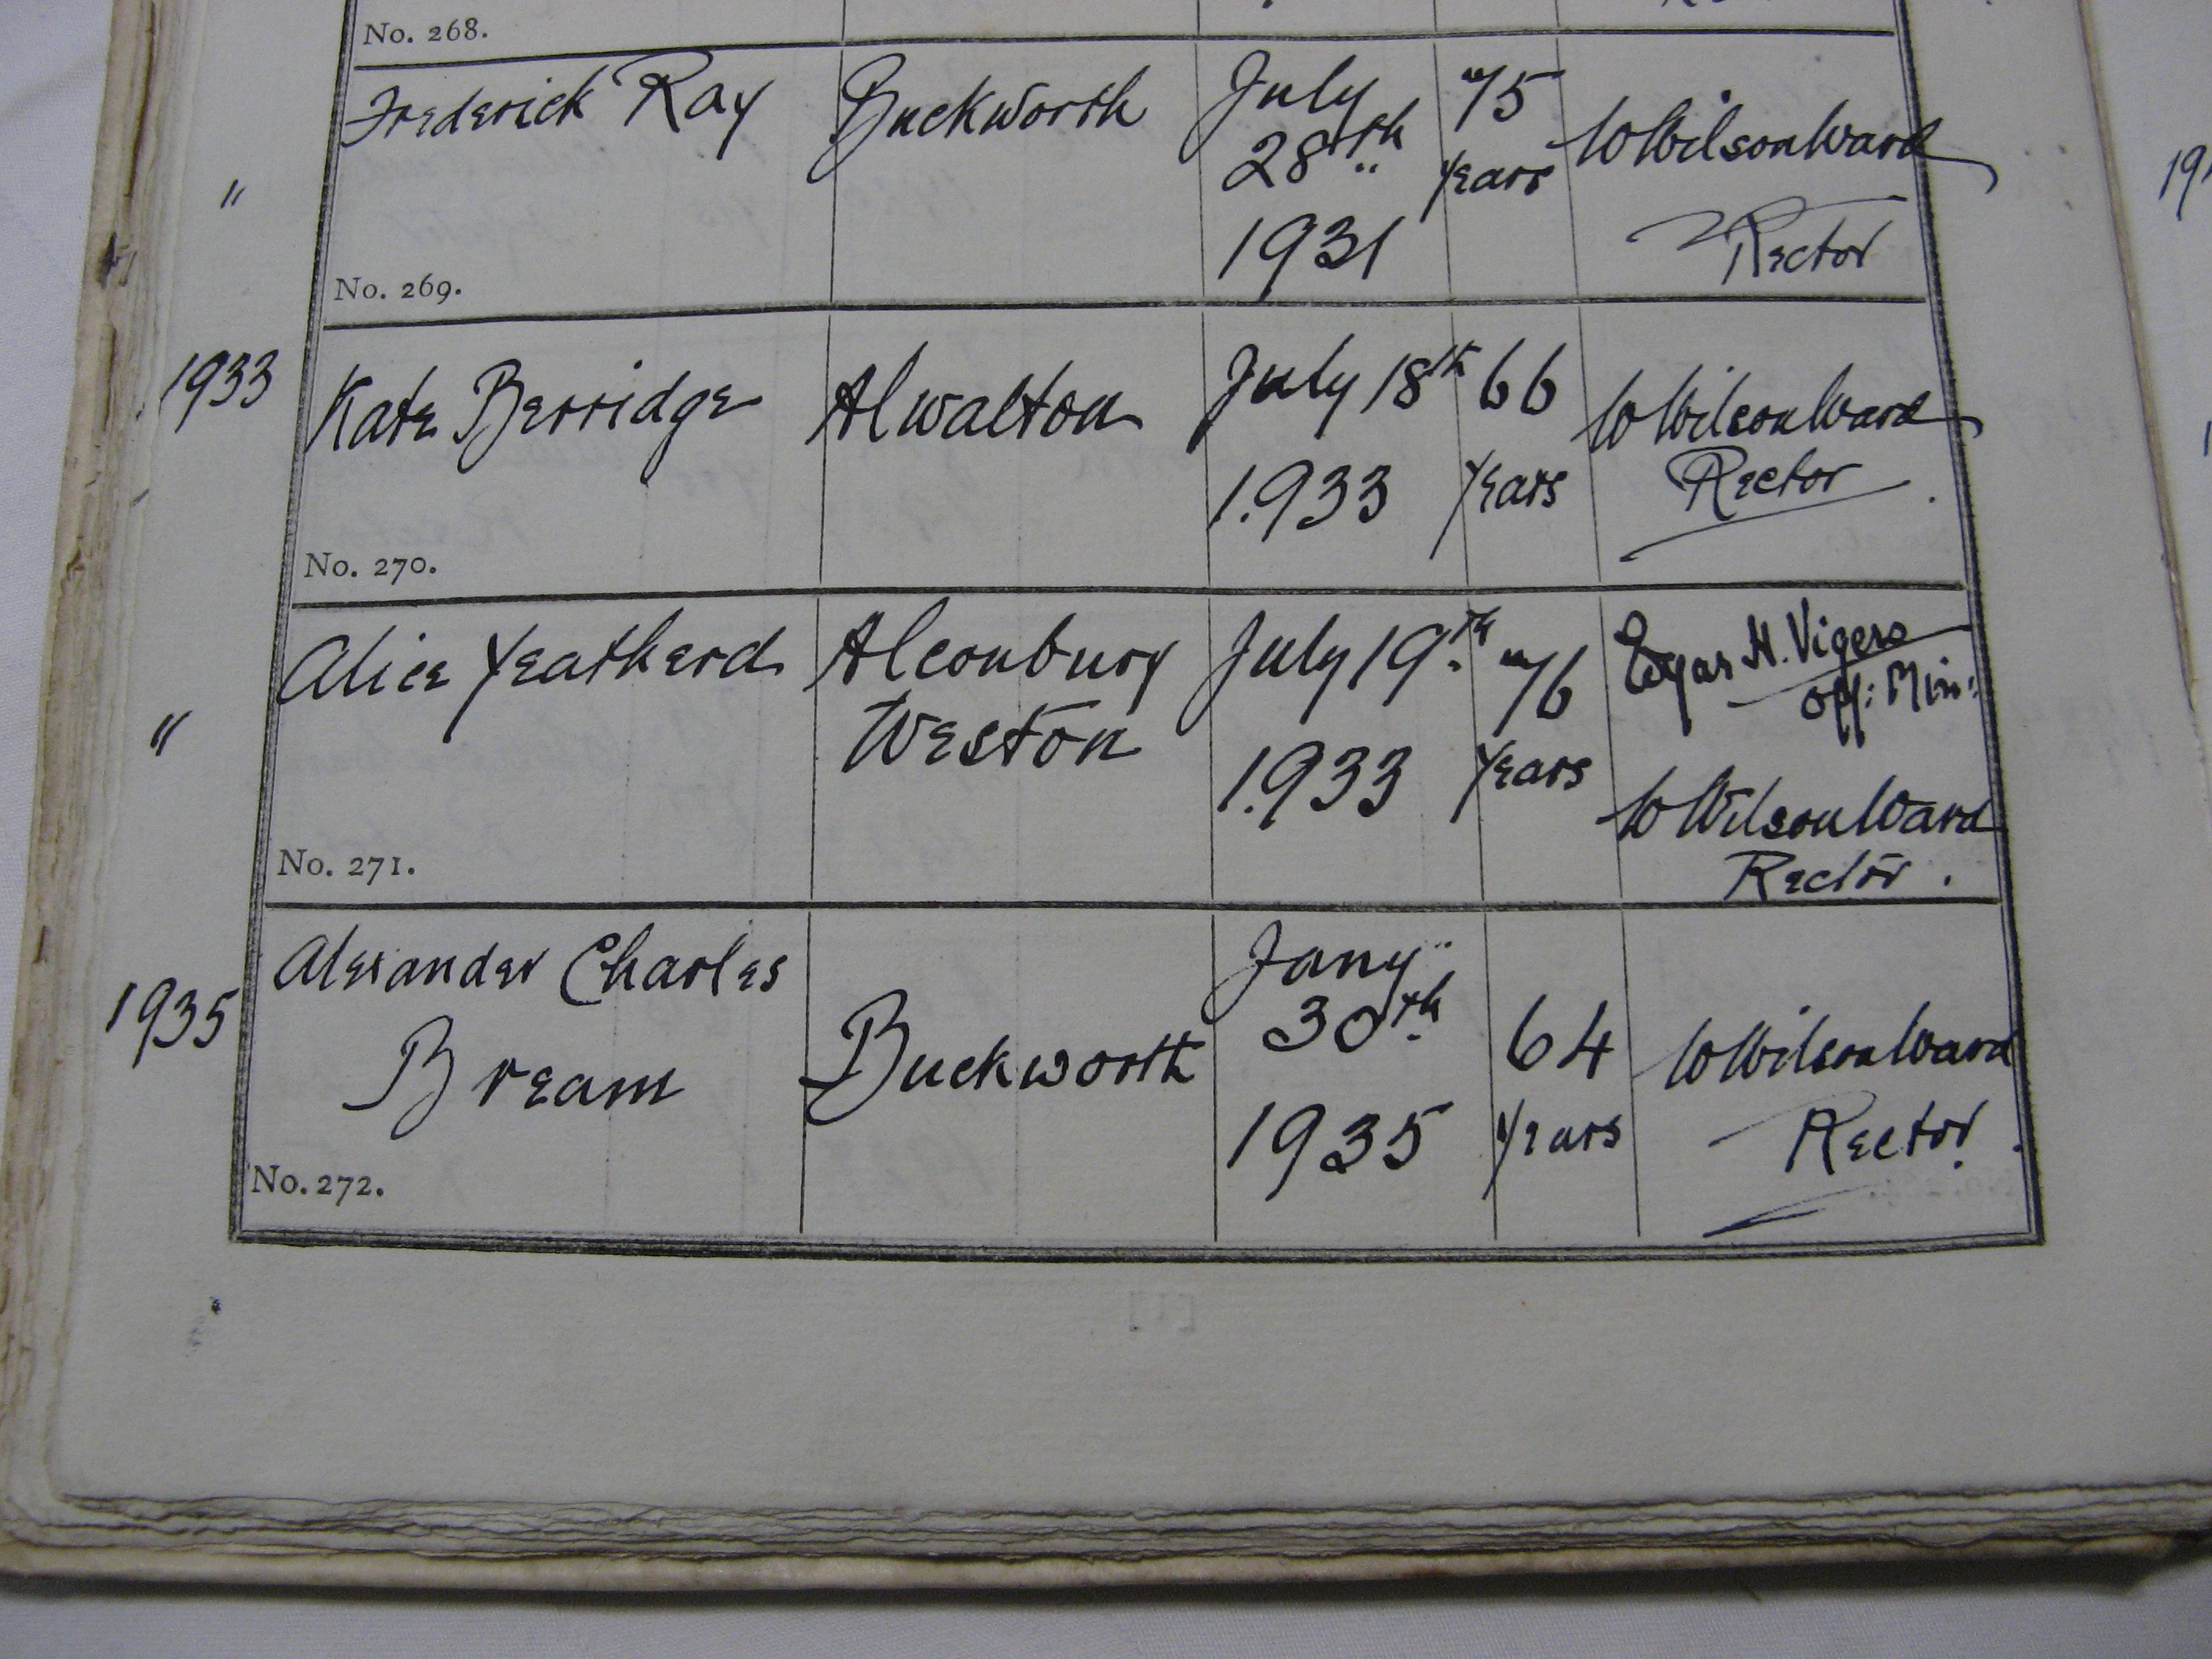 No. 268.
Frederick Ray Buckworth July 28th 1931 75 years W Wilson Ward Rector
"
No. 269.
1933 Kate Berridge Alwalton July 18th 1933 66 years W Wilson Ward Rector
No. 270.
" Alice Yeatherd Alconbury Weston July 19th 1933 76 years Edgar H. Vigers Off: Min: W Wilson Ward Rector.
No. 271.
1935 Alexander Charles Bream Buckworth Jany 30th 1935 64 years W Wilson Ward Rector.
No. 272.